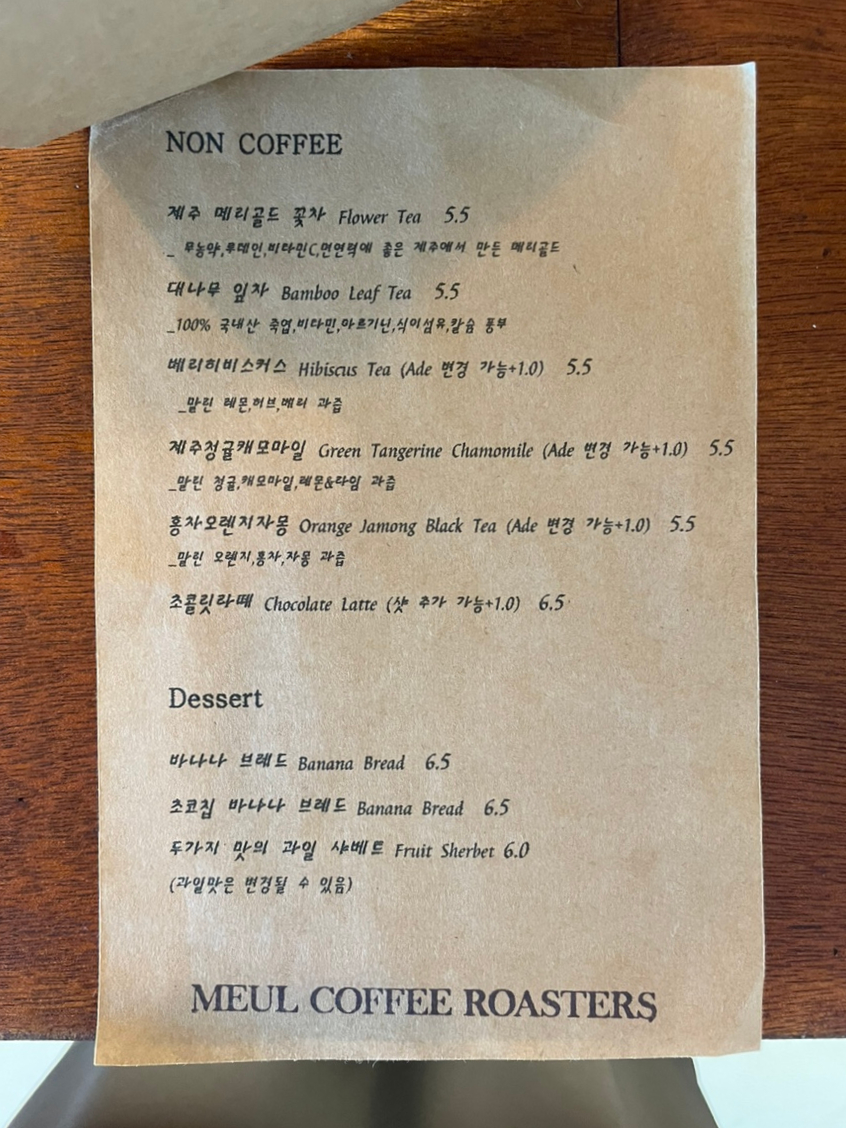 NON COFFEE
제주 메리골드 꽃차 Flower Tea 5.5
_ 무농약,루테인,비타민C,면연력에 좋은 제주에서 만든 메리골드
대나무 잎차 Bamboo Leaf Tea 5.5
_100% 국내산 죽엽,비타민,아르기닌,식이섬유,칼슘 풍부
베리히비스커스 Hibiscus Tea (Ade 변경 가능+1.0) 5.5
_말린 레몬,허브,베리 과즙
제주청귤캐모마일 Green Tangerine Chamomile (Ade 변경 가능+1.0) 5.5
_말린 청귤,캐모마일,레몬&라임 과즙
홍차오렌지자몽 Orange Jamong Black Tea (Ade 변경 가능+1.0) 5.5
_말린 오렌지,홍차,자몽 과즙
초콜릿라떼 Chocolate Latte (샷 추가 가능+1.0) 6.5
Dessert
바나나 브레드 Banana Bread 6.5
초코칩 바나나 브레드 Banana Bread 6.5
두가지 맛의 과일 샤베트 Fruit Sherbet 6.0
(과일맛은 변경될 수 있음)
MEUL COFFEE ROASTERS